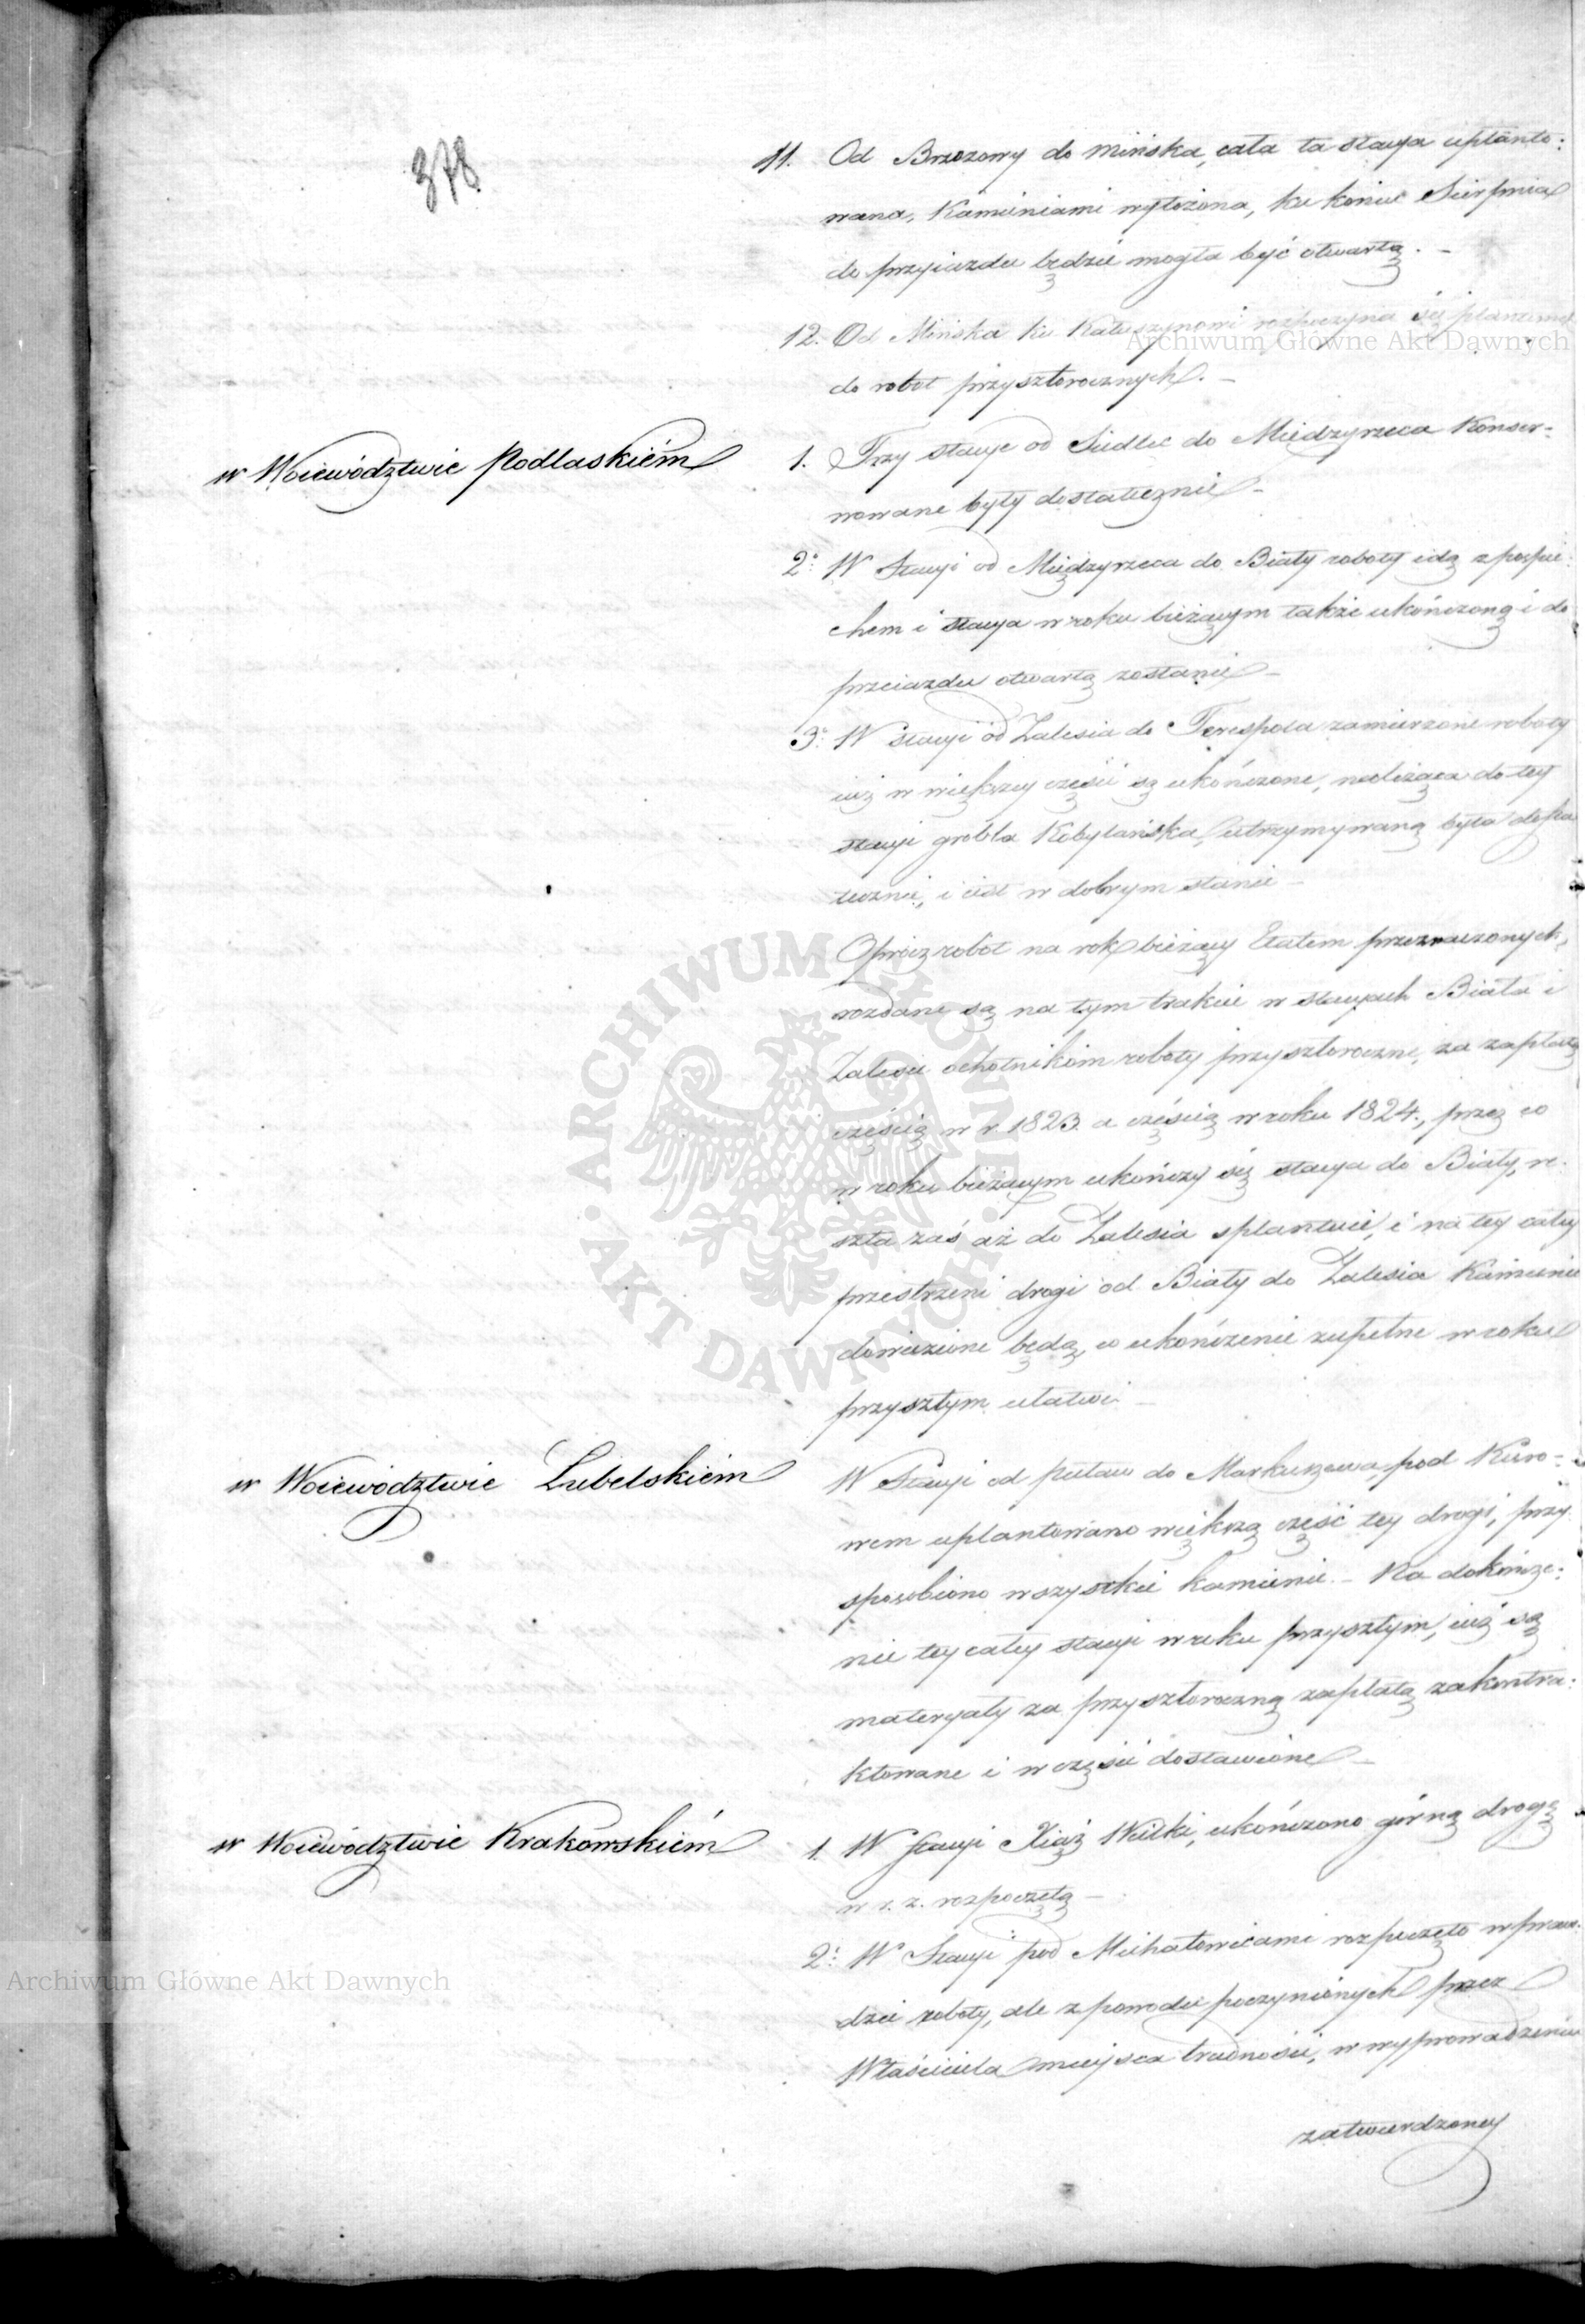 378
11. Od Brzozowy do Mińska, cała ta stacya uplanto:
wana, Kamieniami wyłożona, ku koniec Sierpnia
do przyiazdu będzie mogła być otwartą. –
12. Od Mińska ku Kałuszynowi rozpoczyna się
do robot przyszłorocznych. –
w Woiewództwie Podlaskiém
1. Trzy stacye od Siedlec do Miedzyrzeca Konser-
wowane były dostatecznie –
2º: W Stacyi od Międzyrzeca do Biały roboty idą z pospie:
chem i stacya w roku bieżącym także ukończoną i do
przeiazdu otwartą zostanie –
3º: W stacyi od Zalesia do Terespola zamierzone roboty
iuż w większey części są ukończone, należąca do tey
stacyi grobla Kobylańska, utrzymywaną była dosta
tecznie, i iest w dobrym stanie –
Oprócz robot na rok bieżący Etatem przeznaczonych,
rozdane są na tym trakcie w stacyach Biała i
Zalesie ochotnikom roboty przyszłoroczne, za zapłatą
częścią w r. 1823. a częścią w roku 1824., przez co
w roku bieżącym ukończy się stacya do Biały, re.
szta zaś aż do Zalesia splantuie, i na tey całey
przestrzeni drogi od Biały do Zalesia Kamienie
dowiezione będą, co ukończenie zupełne w roku
przyszłym ułatwi –
w Woiewództwie Lubelskiém
W Stacyi od Puław do Markuszowa, pod Kuro-
wem uplantowano większą część tey drogi, przy
sposobiono wszystkie kamienie. – Na dokończe:
nie tey całey stacyi w roku przyszłym, iuż są
materyały za przyszłoroczną zapłatą zakontra:
ktowane i w części dostawione –
w Woiewództwie Krakowskiém
1. W Stacyi Xiąż Wielki, ukończono górną drogę
w r. z. rozpoczętą –
2º: W Stacyi pod Michałowicami rozpoczęto wpraw.
dzie roboty, ale z powodu poczynionych przez
Właściciela mieysca trudności, w wyprowadzeniu
zatwierdzoney
Archiwum Główne Akt Dawnych
ARCHIWUM GŁÓWNE · AKT DAWNYCH ·
Archiwum Główne Akt Dawnych